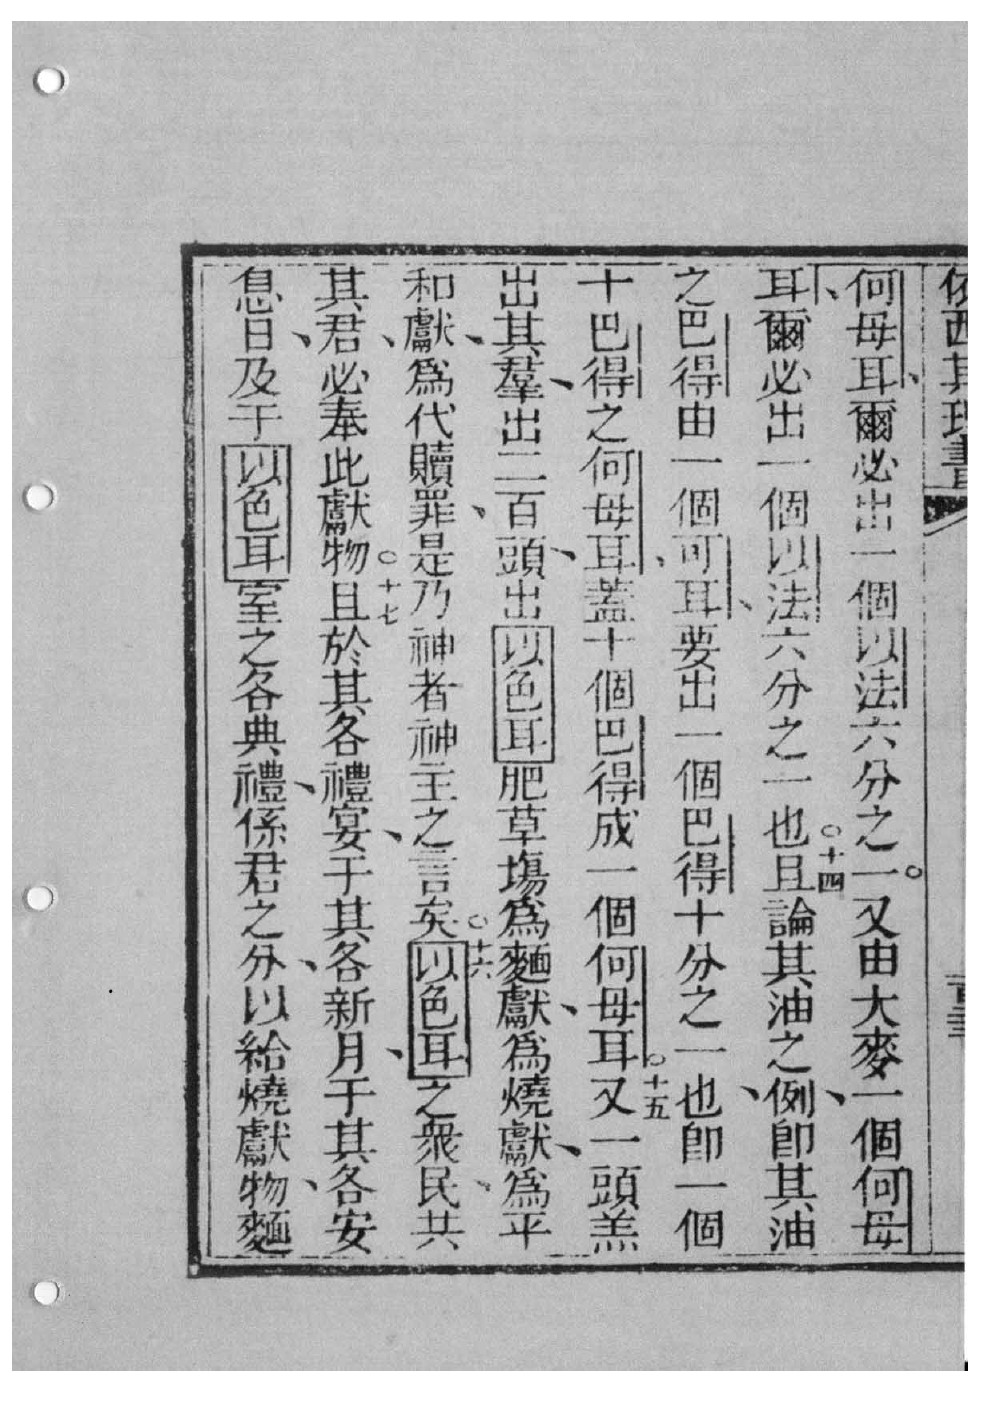 依西其理書
何母耳、爾必出一個以法六分之一。又由大麥一個、何母
耳、爾必出一個以法六分之一也○十四且論其油之例、卽其油
之巴得、由一個可耳、要出一個巴得十分之一也、卽一個
十巴得之何母耳、蓋十個巴得成一個何母耳○十五又一頭羔
出其羣、出二百頭、出以色耳肥草塲、爲麵獻、爲燒獻、爲平
和獻、爲代贖罪、是乃神者神主之言矣○十六以色耳之衆民、共
其君、必奉此獻物○十七且於其各禮宴、于其各新月、于其各安
息日、及于以色耳室之各典禮、係君之分、以給燒獻物、麵